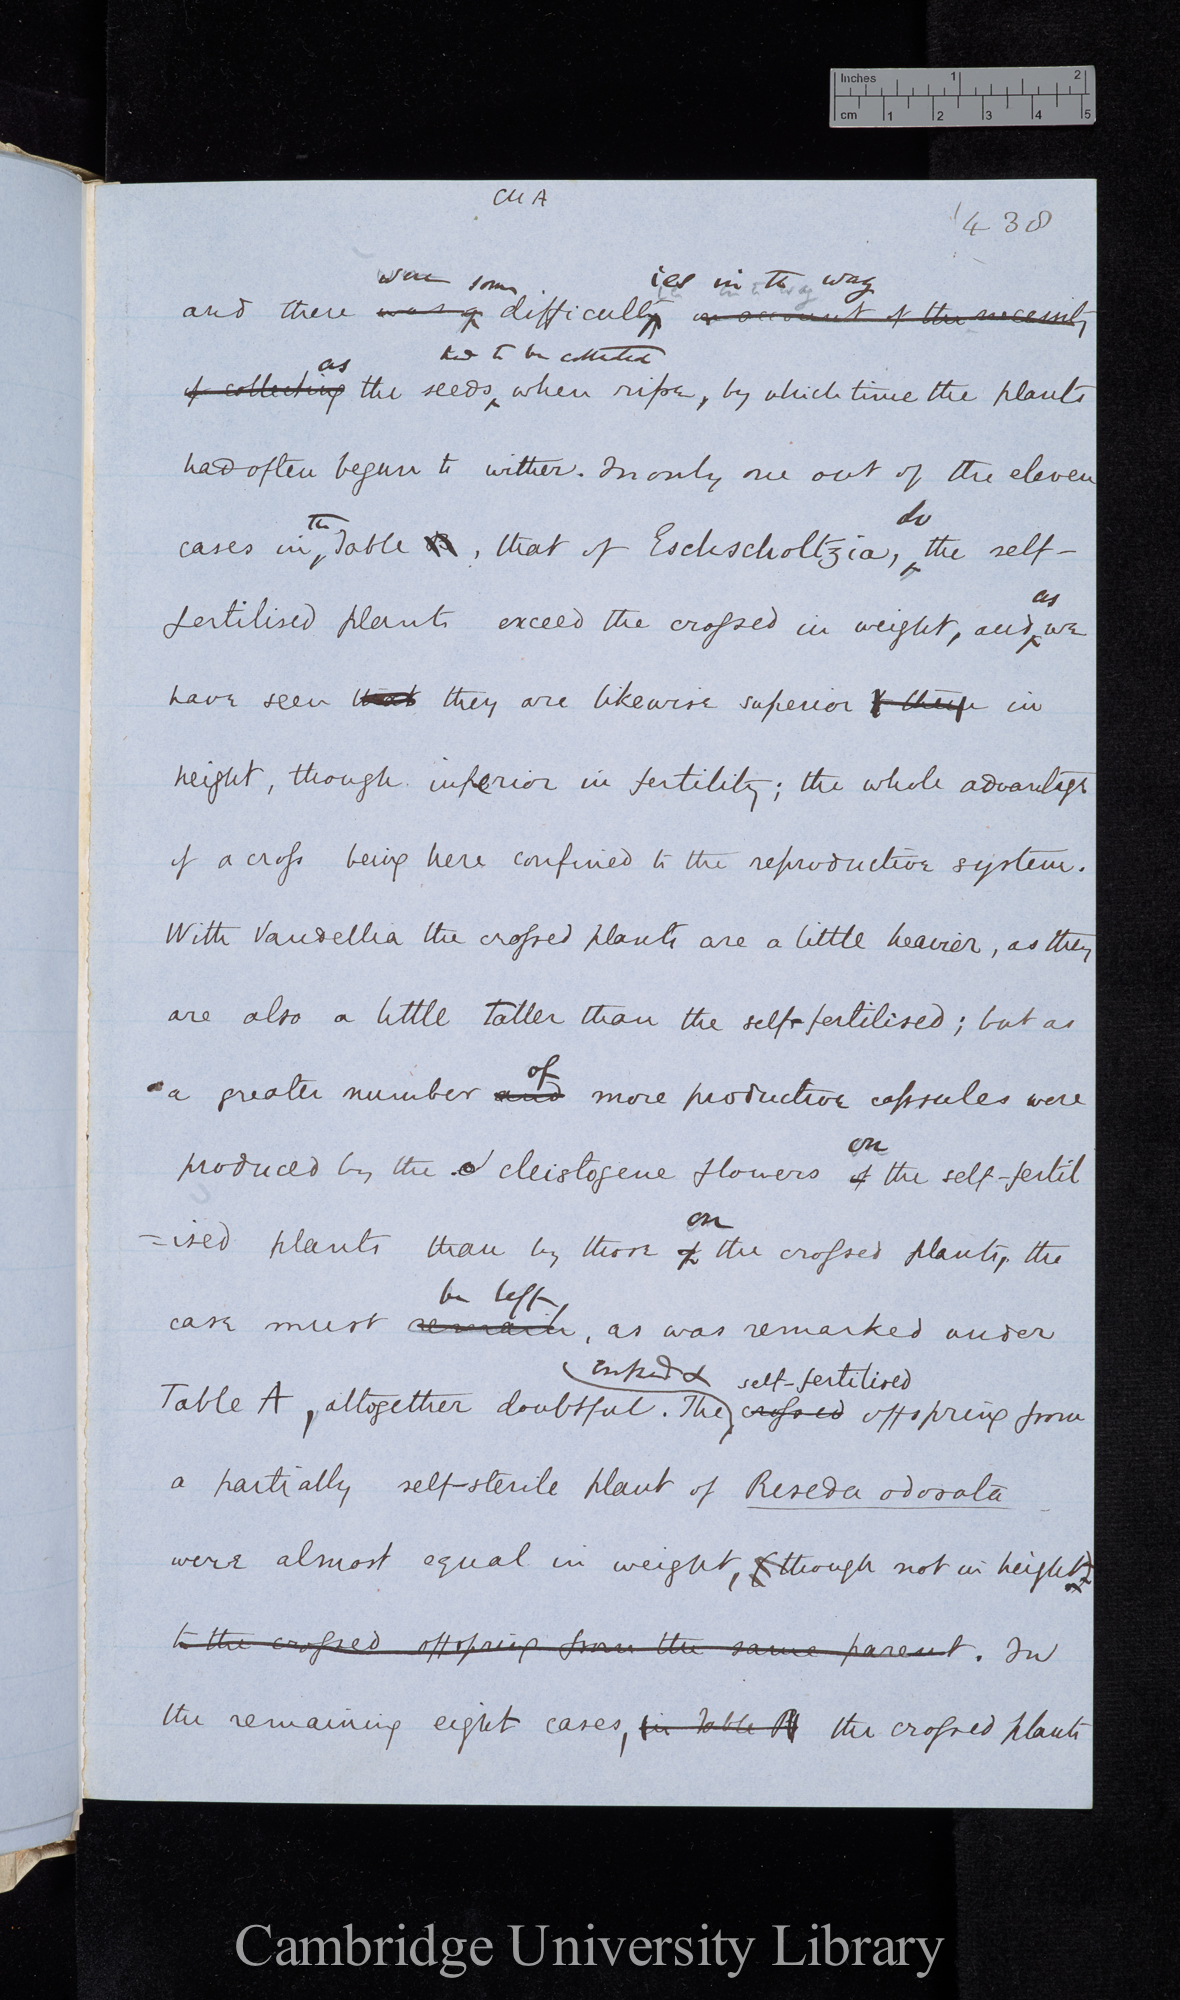 Inches 1 2
cm 1 2 3 4 5
CH A
438
were some ies in the way
and there was a difficulty on account of the necessity
as had to be collected
of collecting the seeds, when ripe, by which time the plants
had often begun to wither. In only one out of the eleven
the do
cases in Table B, that of Eschscholtzia, the self-
as
fertilised plants exceed the crossed in weight, and we
have seen that they are likewise superior in
height, though inferior in fertility; the whole advantage
of a cross being here confined to the reproductive system.
With Vandellia the crossed plants are a little heavier, as they
are also a little taller than the self-fertilised; but as
of
a greater number and more productive capsules were
on
produced by the cleistogene flowers of the self-fertil
on
=ised plants than by those of the crossed plants, the
be left
case must remain, as was remarked under
crossed & self-fertilised
Table A, altogether doubtful. The crossed offspring from
a partially self-sterile plant of Reseda odorata
were almost equal in weight, (though not in height)
to the crossed offspring from the same parent. In
the remaining eight cases, in Table B the crossed plants
Cambridge University Library